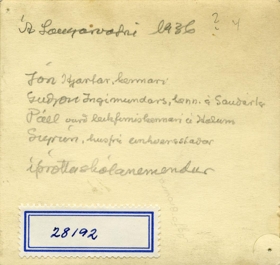 Á Laugarvatni 1936 ?
Jón Hjartar, kennari
Guðjón Ingimundars. kenn. á Sauðárkr
Páll leikfimiskennari á Hólum
húsfrú
íþróttaskólanemendur
28192